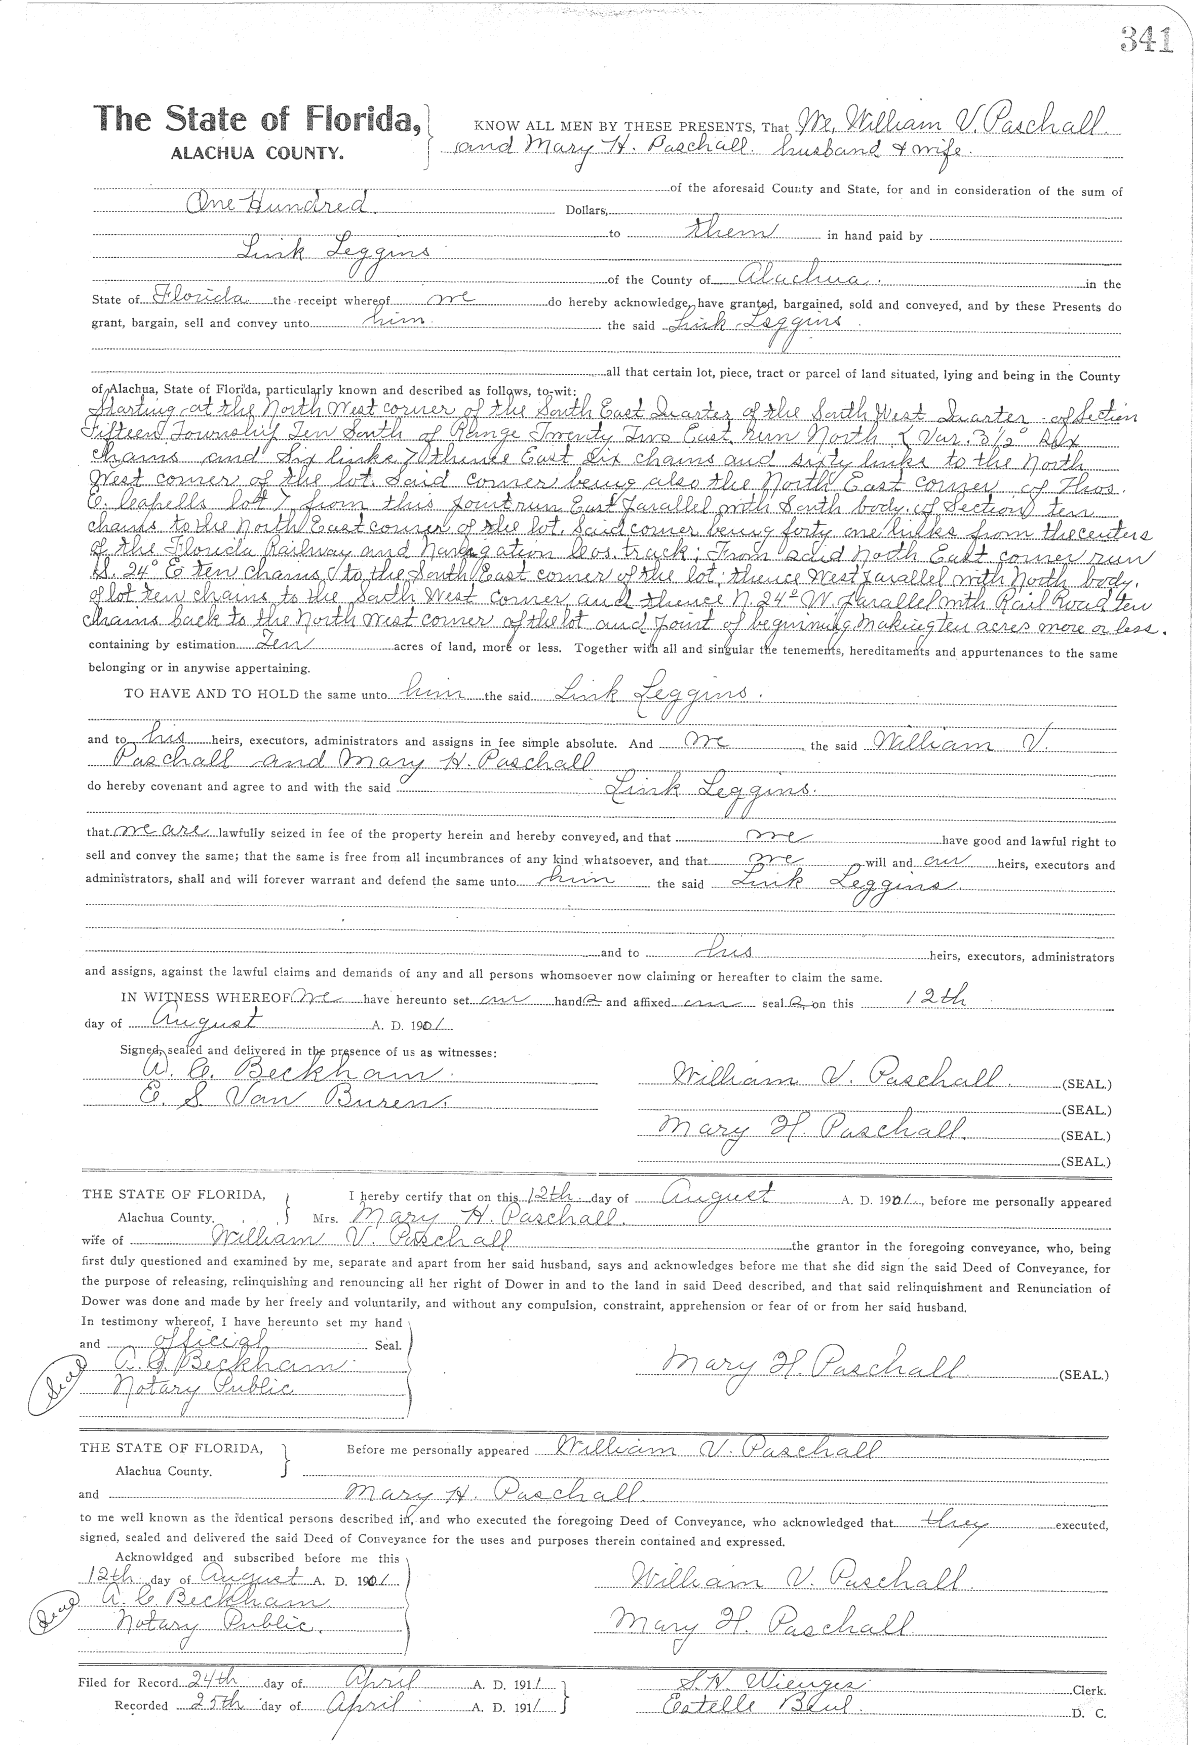 341
The State of Florida, KNOW ALL MEN BY THESE PRESENTS, That We, William V. Paschall
ALACHUA COUNTY. and Mary H. Paschall husband & wife
of the aforesaid County and State, for and in consideration of the sum of
One Hundred Dollars,
to them in hand paid by
Link Leggins
of the County of Alachua in the
State of Florida the receipt whereof we do hereby acknowledge, have granted, bargained, sold and conveyed, and by these Presents do
grant, bargain, sell and convey unto him the said Link Leggins
all that certain lot, piece, tract or parcel of land situated, lying and being in the County
of Alachua, State of Florida, particularly known and described as follows, to-wit:
Starting at the North West corner of the South East Quarter of the South West Quarter of Section
Fifteen, Township Ten South of Range Twenty Two East run North { Var. 3½° Six
chains and Six links } thence East Six chains and sixty links to the North
West corner of the lot. Said corner being also the North East corner of Thos.
E. lot } from this point run East Parallel with South body. of Section ten
chains to the North East corner of the lot. Said corner being forty one links from the centers
of the Florida Railway and Navigation Cos. track; From said North East corner run
S. 24° E ten chains to the South East corner of the lot; thence West parallel with North body.
of lot ten chains to the South West corner, and thence N. 24° W. Parallel with Rail Road ten
chains back to the North West corner of the lot and point of beginning making ten acres more or less.
containing by estimation Ten acres of land, more or less. Together with all and singular the tenements, hereditaments and appurtenances to the same
belonging or in anywise appertaining.
TO HAVE AND TO HOLD the same unto him the said Link Leggins.
and to his heirs, executors, administrators and assigns in fee simple absolute. And we, the said William V.
Paschall and Mary H. Paschall
do hereby covenant and agree to and with the said Link Leggins.
that we are lawfully seized in fee of the property herein and hereby conveyed, and that we have good and lawful right to
sell and convey the same; that the same is free from all incumbrances of any kind whatsoever, and that we will and our heirs, executors and
administrators, shall and will forever warrant and defend the same unto him the said Link Leggins.
and to his heirs, executors, administrators
and assigns, against the lawful claims and demands of any and all persons whomsoever now claiming or hereafter to claim the same.
IN WITNESS WHEREOF we have hereunto set our hands and affixed our seals, on this 12th
day of August A. D. 1901
Signed, sealed and delivered in the presence of us as witnesses:
A. C. Beckham William V. Paschall (SEAL.)
E. S. Van Buren. (SEAL.)
Mary H. Paschall. (SEAL.)
(SEAL.)
THE STATE OF FLORIDA, I hereby certify that on this 12th day of August A. D. 1901, before me personally appeared
Alachua County. Mrs. Mary H. Paschall.
wife of William V. Paschall the grantor in the foregoing conveyance, who, being
first duly questioned and examined by me, separate and apart from her said husband, says and acknowledges before me that she did sign the said Deed of Conveyance, for
the purpose of releasing, relinquishing and renouncing all her right of Dower in and to the land in said Deed described, and that said relinquishment and Renunciation of
Dower was done and made by her freely and voluntarily, and without any compulsion, constraint, apprehension or fear of or from her said husband.
In testimony whereof, I have hereunto set my hand
and official Seal.
Seal A. C. Beckham Mary H. Paschall (SEAL.)
Notary Public
THE STATE OF FLORIDA, Before me personally appeared William V. Paschall
Alachua County.
and Mary H. Paschall.
to me well known as the identical persons described in, and who executed the foregoing Deed of Conveyance, who acknowledged that they executed,
signed, sealed and delivered the said Deed of Conveyance for the uses and purposes therein contained and expressed.
Acknowldged and subscribed before me this
12th day of August A. D. 1901 William V. Paschall
Seal A. C. Beckham
Notary Public. Mary H. Paschall
Filed for Record 24th day of April A. D. 1911 S. H. Wienges Clerk.
Recorded 25th day of April A. D. 1911 Estelle D. C.